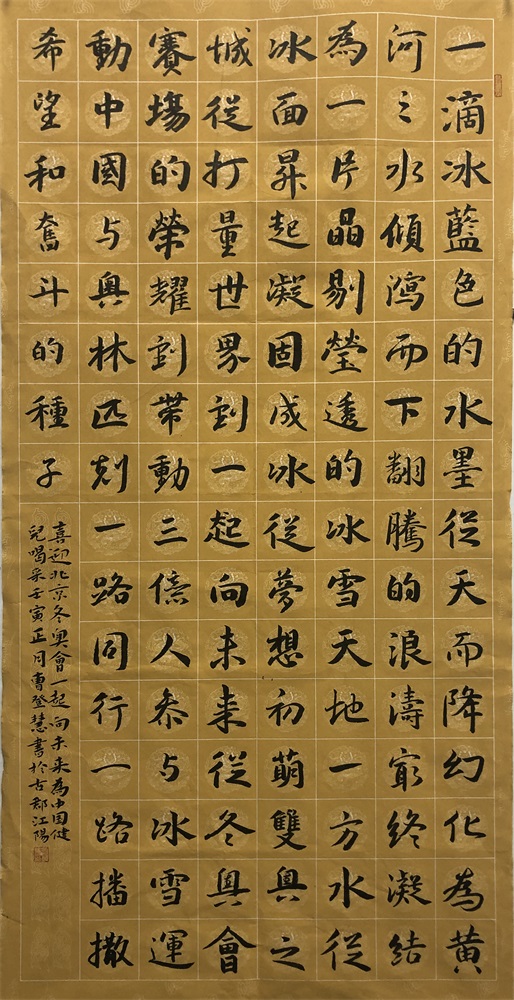 一滴冰藍色的水墨從天而降幻化為黃
河之水傾瀉而下翻騰的浪濤最終凝結
為一片晶剔瑩透的冰雪天地一方水從
冰面昇起凝固成冰從夢想初萌雙奧之
城從打量世界到一起向未來從冬奧會
賽塲的榮耀到帶動三億人参与冰雪運
動中國与奧林匹剋一路同行一路播撒
希望和奮斗的種子
喜迎北京冬奧會一起向未來為中国健
兒喝采壬寅正月曹登慧書於古郡江陽